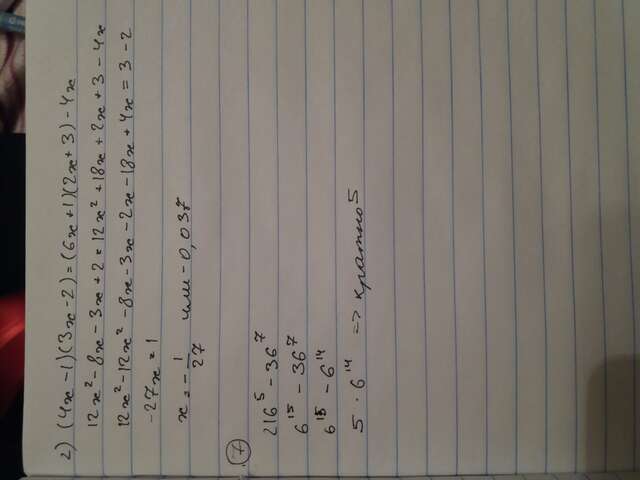 2) (4x - 1)(3x - 2) = (6x + 1)(2x + 3) - 4x
12x² - 8x - 3x + 2 = 12x² + 18x + 2x + 3 - 4x
12x² - 12x² - 8x - 3x - 2x - 18x + 4x = 3 - 2
-27x = 1
x = - 1/27 или -0,037
7
216⁵ - 36⁷
6¹⁵ - 36⁷
6¹⁵ - 6¹⁴
5 · 6¹⁴ => кратно 5